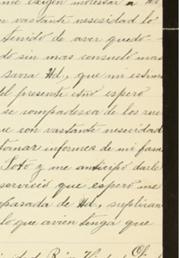 me exigen interesar a
n vastante nesesidad lo
tenido de aver quedo
do sin mas consuelo mas
sava Ud, que mi estim
el presente año espero
se compadesca de los rue
u con vastante nesesidad
tomar informes de mi fam
Soto y me anticipo darle
servicio que espero me
pasada de Ud, suplican
lo que avien tenga que